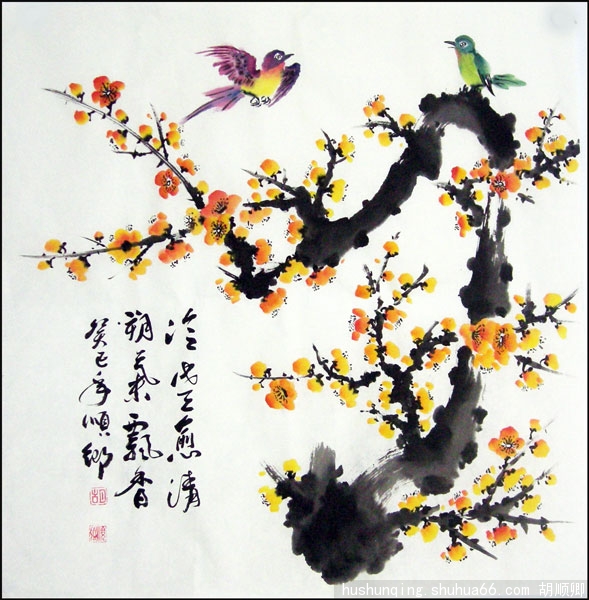 冷愈清
朔氣飄香
癸巳年順卿
hushunqing shuhua66.com 胡顺卿